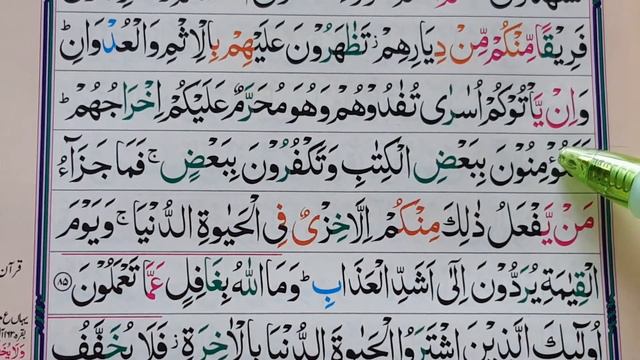 فَرِيۡقًا مِّنۡكُمۡ مِّنۡ دِيَارِهِمۡ تَظٰهَرُوۡنَ عَلَيۡهِمۡ بِالۡاِثۡمِ وَالۡعُدۡوَانِؕ
وَاِنۡ يَّاۡتُوۡكُمۡ اُسٰرٰى تُفٰدُوۡهُمۡ وَهُوَ مُحَرَّمٌ عَلَيۡكُمۡ اِخۡرَاجُهُمۡؕ
اَفَتُؤۡمِنُوۡنَ بِبَعۡضِ الۡكِتٰبِ وَتَكۡفُرُوۡنَ بِبَعۡضٍۚ فَمَا جَزَآءُ
مَنۡ يَّفۡعَلُ ذٰلِكَ مِنۡكُمۡ اِلَّا خِزۡىٌ فِى الۡحَيٰوةِ الدُّنۡيَاۚ وَيَوۡمَ
الۡقِيٰمَةِ يُرَدُّوۡنَ اِلٰٓى اَشَدِّ الۡعَذَابِؕ وَمَا اللّٰهُ بِغَافِلٍ عَمَّا تَعۡمَلُوۡنَ ۸۵
اُولٰٓئِكَ الَّذِيۡنَ اشۡتَرَوُا الۡحَيٰوةَ الدُّنۡيَا بِالۡاٰخِرَةِ فَلَا يُخَفَّفُ